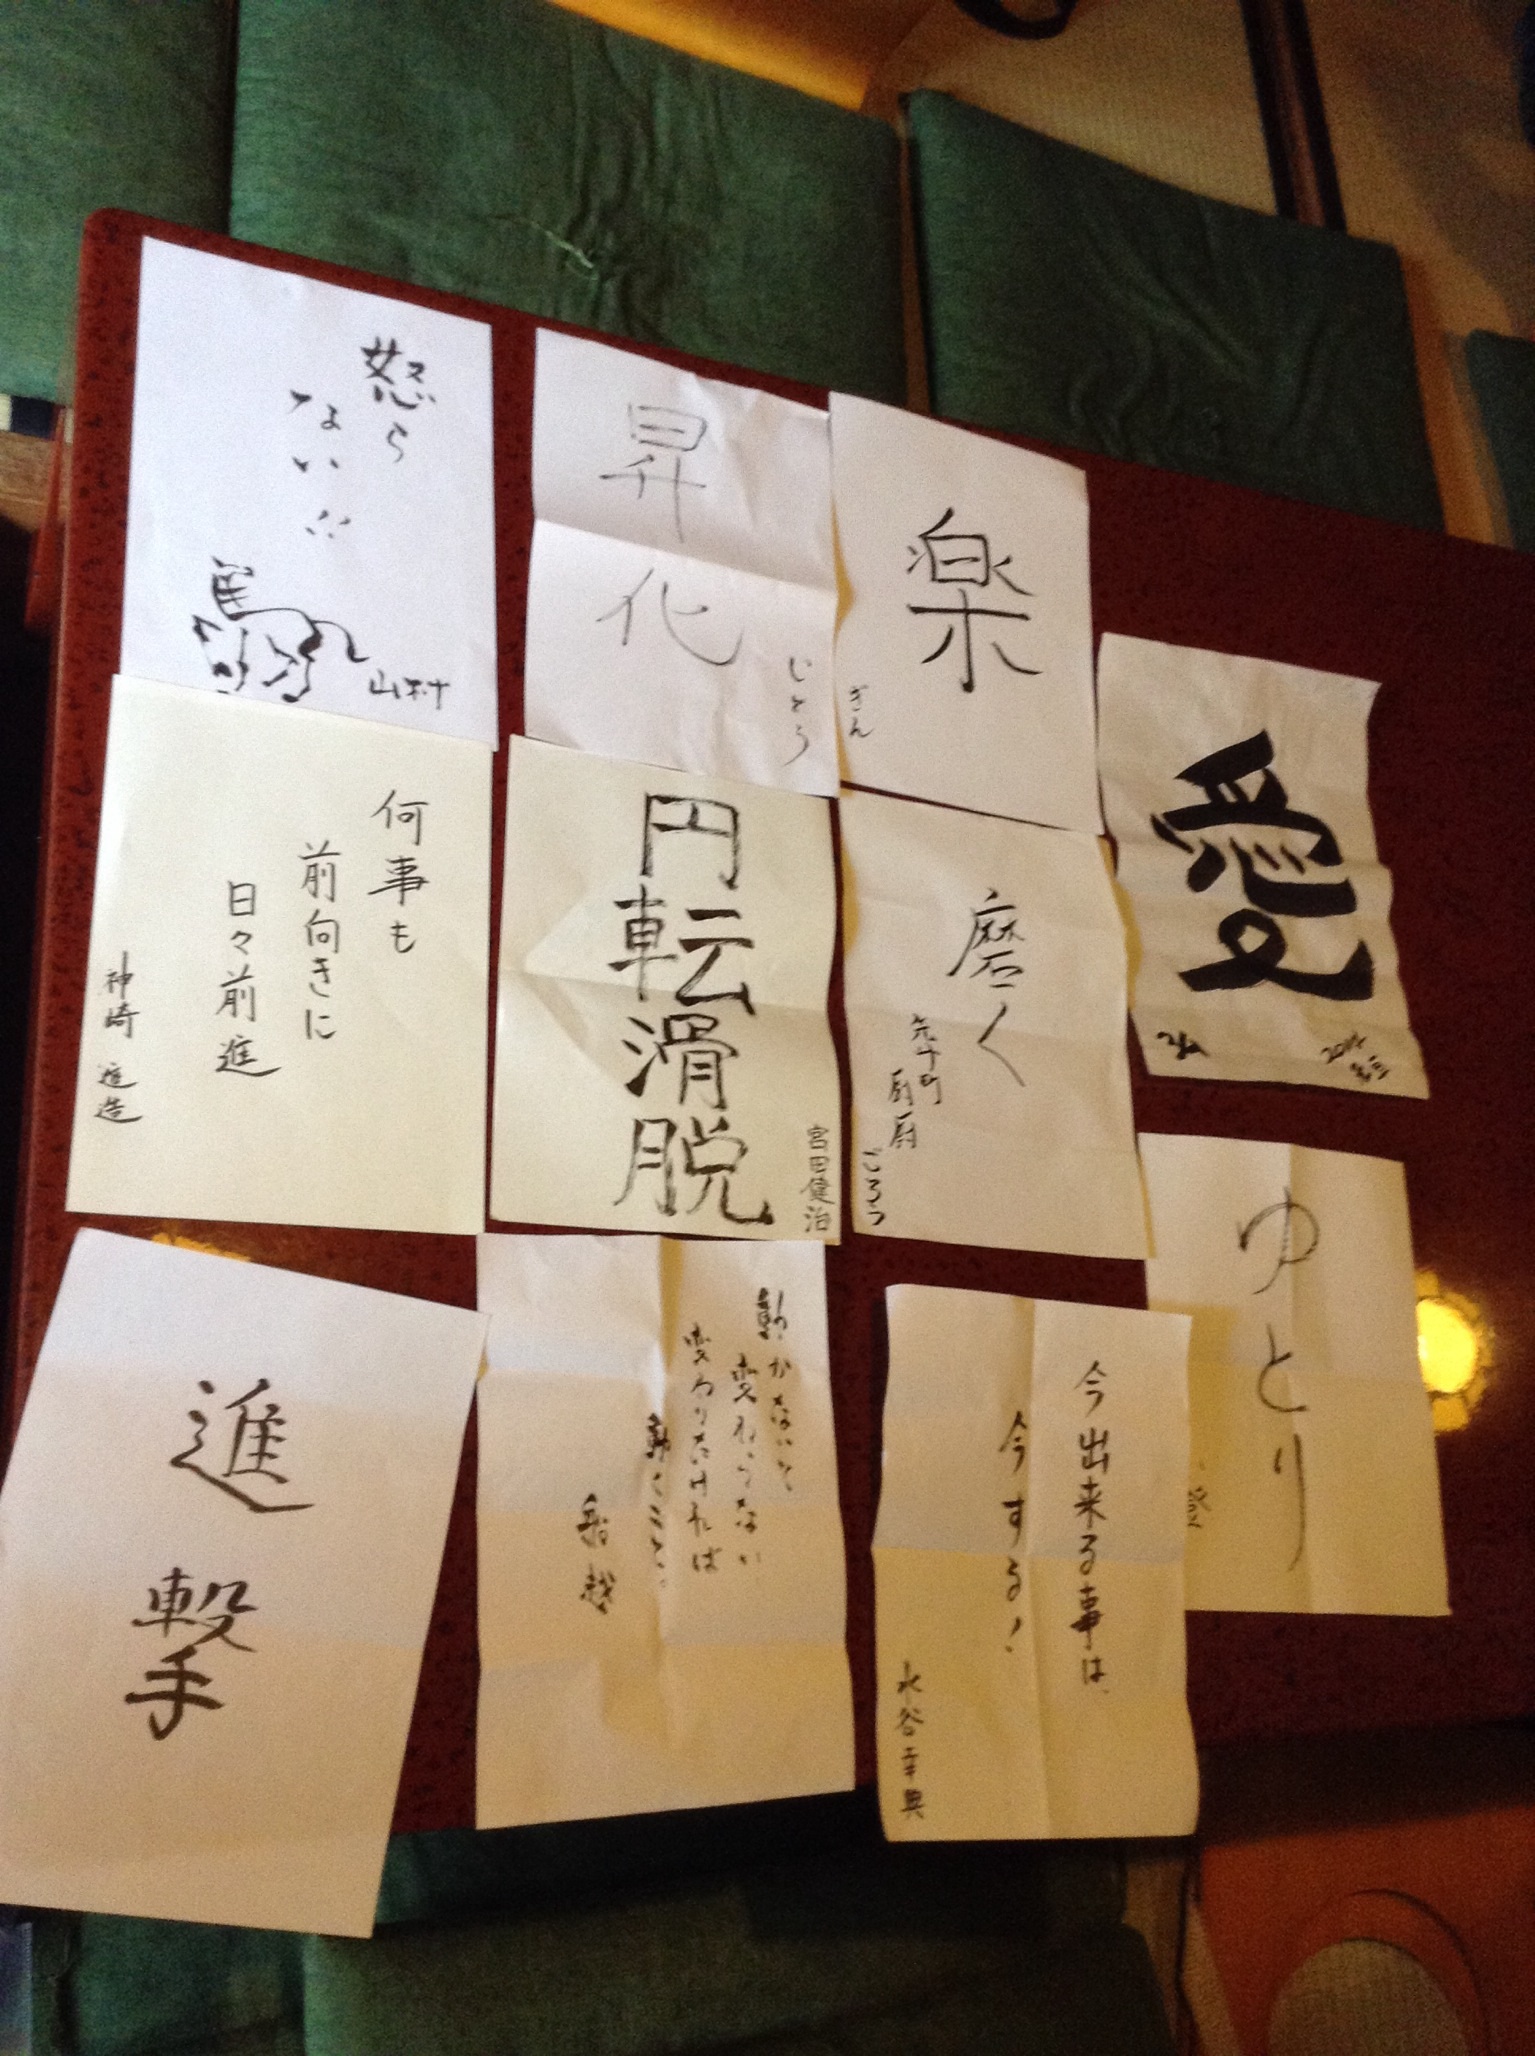 怒ら
ない!!
馬
山村
昇化
じとう
楽
ぎん
愛
2014
何事も
前向きに
日々前進
神崎 進造
円転滑脱
宮田健治
磨く
先斗町
厨厨
ごろう
ゆとり
進撃
動かないと
変わらない
変わりたければ
動くこと。
船越
今出来る事は、
今する!
水谷幸典